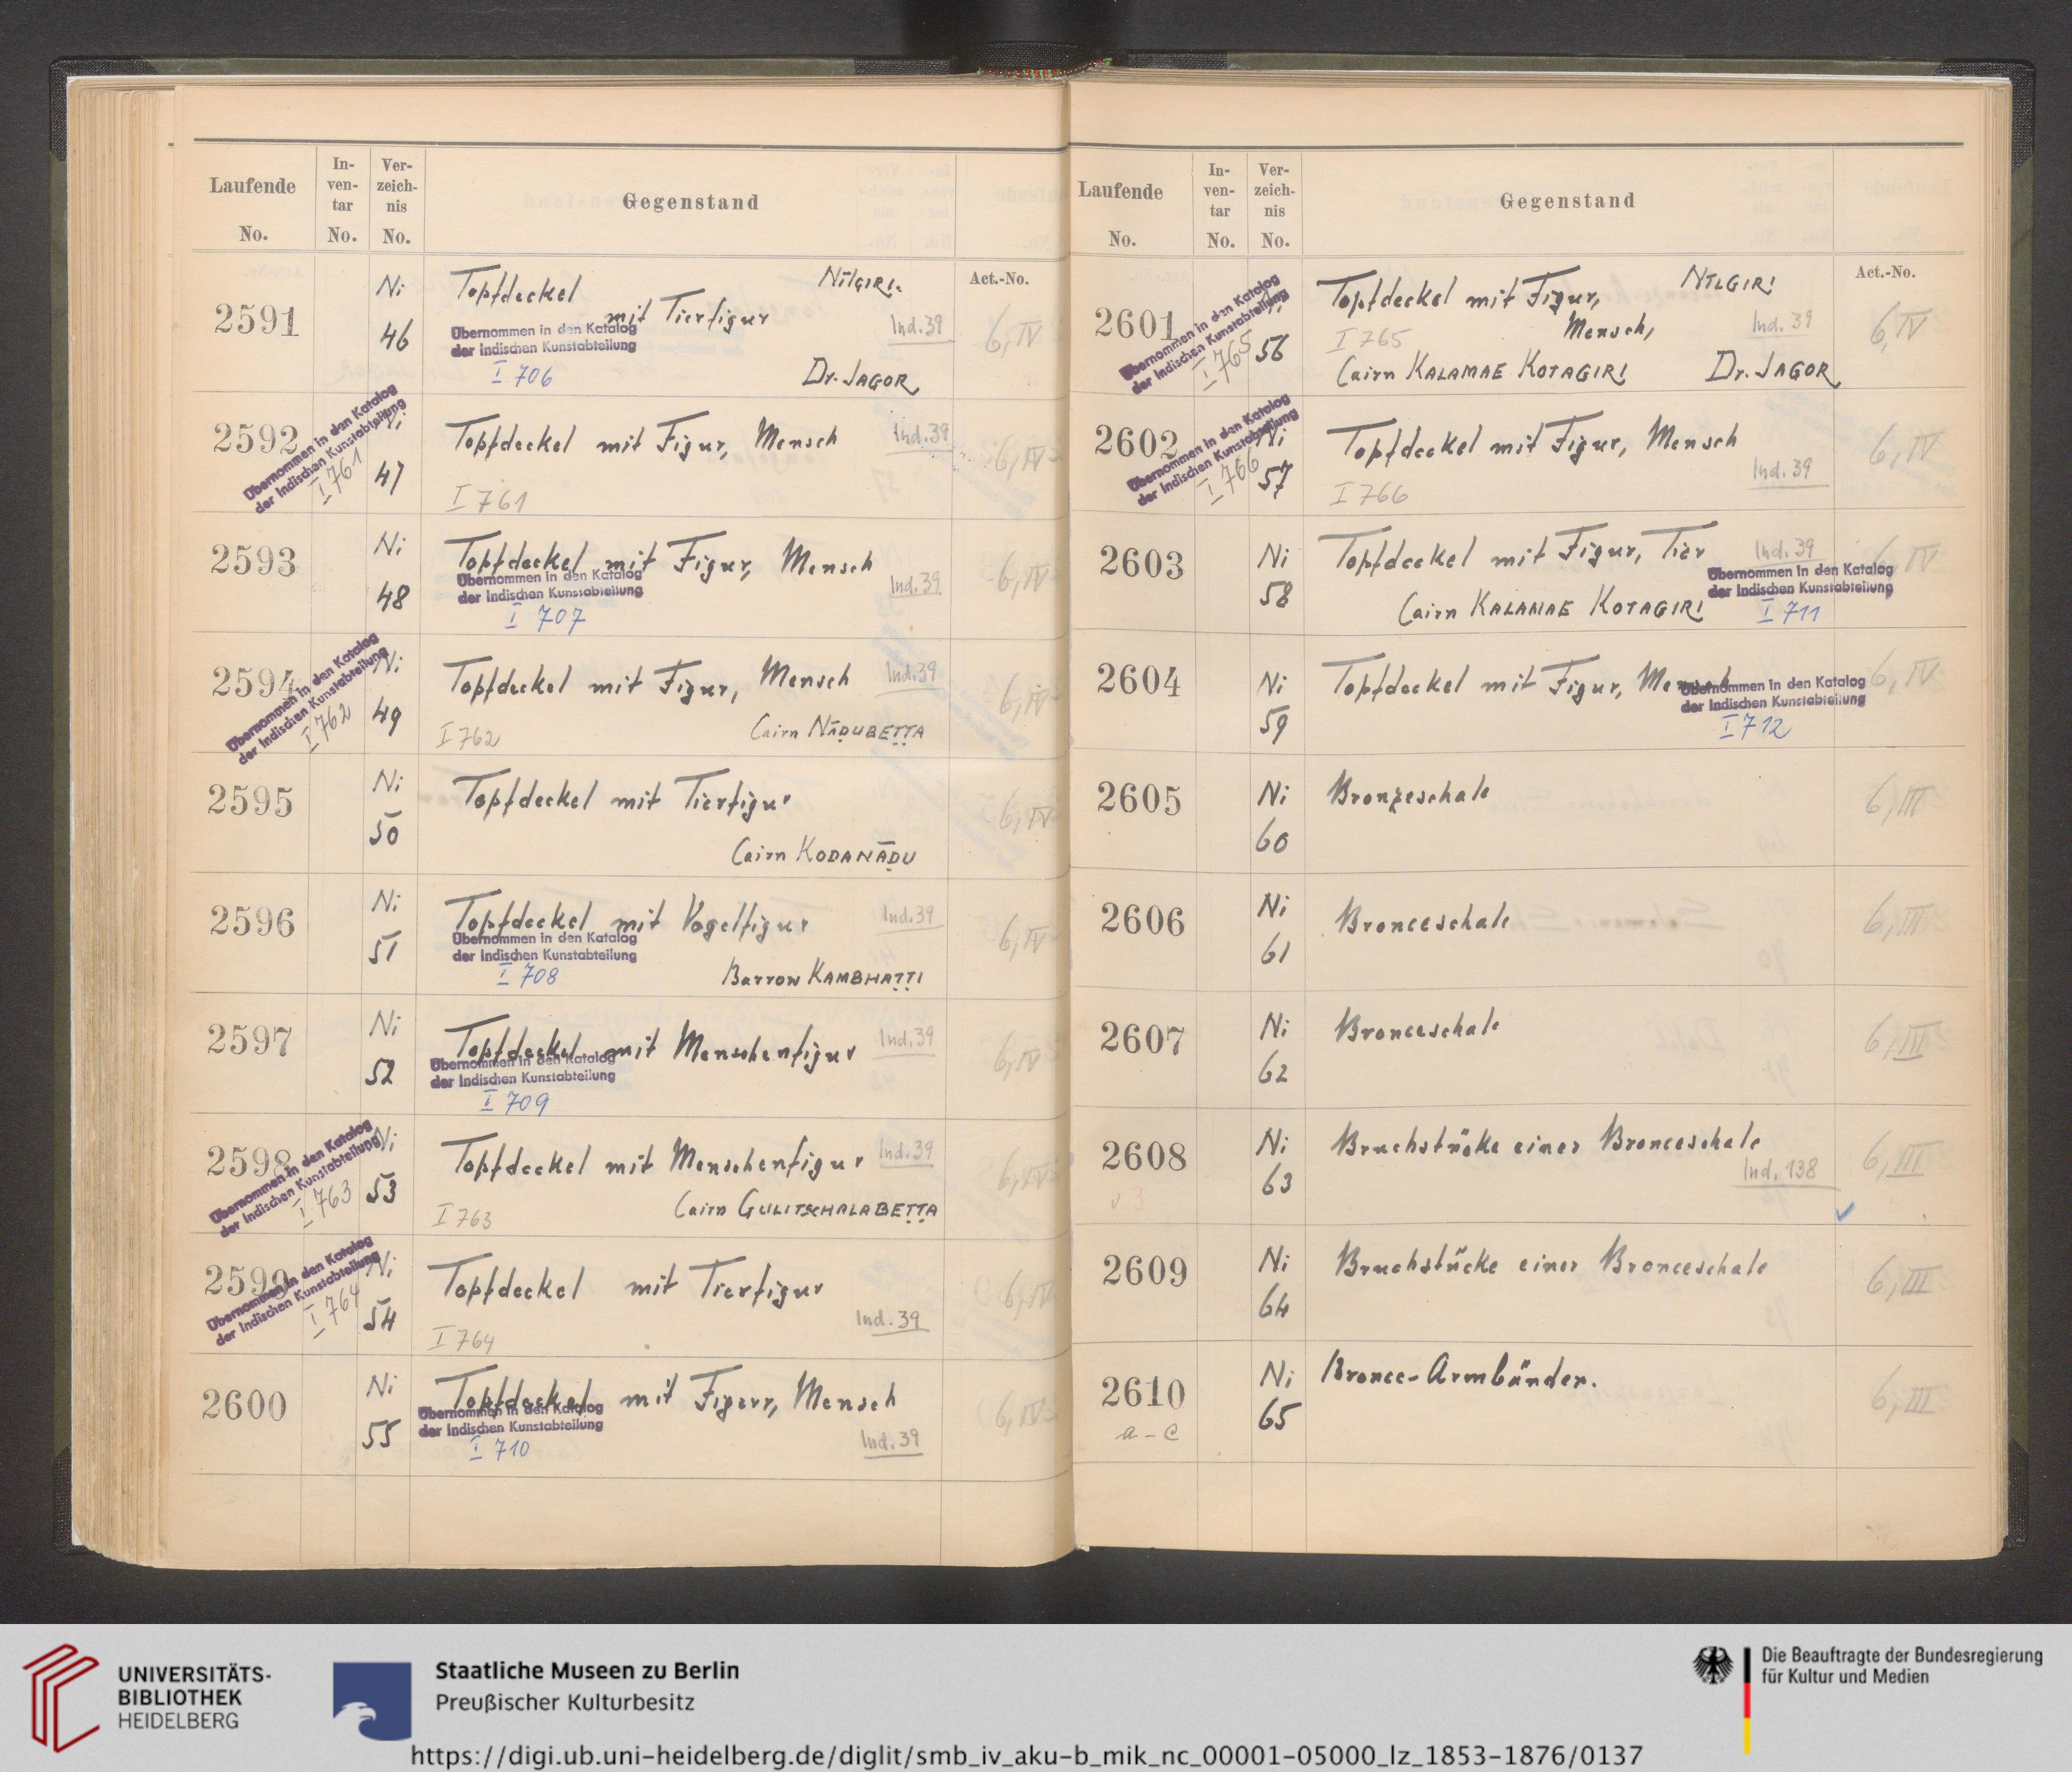 Laufende No.
In-ven-tar No.
Ver-zeich-nis No.
Gegenstand
Act.-No.
2591
Ni 46
Topfdeckel NĪLGIRI.
mit Tierfigur
Ind. 39
6, IV
Übernommen in den Katalog
der Indischen Kunstabteilung
I 706
Dr. JAGOR
2592
Ni 47
Topfdeckel mit Figur, Mensch
Ind. 39
6, IV
Übernommen in den Katalog
der Indischen Kunstabteilung
I 761
I 761
2593
Ni 48
Topfdeckel mit Figur, Mensch
Ind. 39
6, IV
Übernommen in den Katalog
der Indischen Kunstabteilung
I 707
2594
Ni 49
Topfdeckel mit Figur, Mensch
Ind. 39
6, IV
Übernommen in den Katalog
der Indischen Kunstabteilung
I 762
I 762
Cairn NĀḌUBEṬṬA
2595
Ni 50
Topfdeckel mit Tierfigur
6, IV
Cairn KODANĀḌU
2596
Ni 51
Topfdeckel mit Vogelfigur
Ind. 39
6, IV
Übernommen in den Katalog
der Indischen Kunstabteilung
I 708
Barrow KAMBHAṬṬI
2597
Ni 52
Topfdeckel mit Menschenfigur
Ind. 39
6, IV
Übernommen in den Katalog
der Indischen Kunstabteilung
I 709
2598
Ni 53
Topfdeckel mit Menschenfigur
Ind. 39
6, IV
Übernommen in den Katalog
der Indischen Kunstabteilung
I 763
I 763
Cairn GULITSCHALABEṬṬA
2599
Ni 54
Topfdeckel mit Tierfigur
Ind. 39
6, IV
Übernommen in den Katalog
der Indischen Kunstabteilung
I 764
I 764
2600
Ni 55
Topfdeckel mit Figur, Mensch
Ind. 39
6, IV
Übernommen in den Katalog
der Indischen Kunstabteilung
I 710
Laufende No.
In-ven-tar No.
Ver-zeich-nis No.
Gegenstand
Act.-No.
2601
56
Topfdeckel mit Figur, NĪLGIRI
Mensch,
Ind. 39
6, IV
Übernommen in den Katalog
der Indischen Kunstabteilung
I 765
I 765
Cairn KALAMAE KOTAGIRI Dr. JAGOR
2602
Ni 57
Topfdeckel mit Figur, Mensch
Ind. 39
6, IV
Übernommen in den Katalog
der Indischen Kunstabteilung
I 766
I 766
2603
Ni 58
Topfdeckel mit Figur, Tier
Ind. 39
6, IV
Übernommen in den Katalog
der Indischen Kunstabteilung
I 711
Cairn KALAMAE KOTAGIRI
2604
Ni 59
Topfdeckel mit Figur, Mensch
6, IV
Übernommen in den Katalog
der Indischen Kunstabteilung
I 712
2605
Ni 60
Bronzeschale
6, III
2606
Ni 61
Bronceschale
6, III
2607
Ni 62
Bronceschale
6, III
2608
Ni 63
Bruchstücke einer Bronceschale
Ind. 138
6, III
v 3
2609
Ni 64
Bruchstücke einer Bronceschale
6, III
2610
a - c
Ni 65
Bronce-Armbänder.
6, III
UNIVERSITÄTS-
BIBLIOTHEK
HEIDELBERG
Staatliche Museen zu Berlin
Preußischer Kulturbesitz
Die Beauftragte der Bundesregierung
für Kultur und Medien
https://digi.ub.uni-heidelberg.de/diglit/smb_iv_aku-b_mik_nc_00001-05000_lz_1853-1876/0137